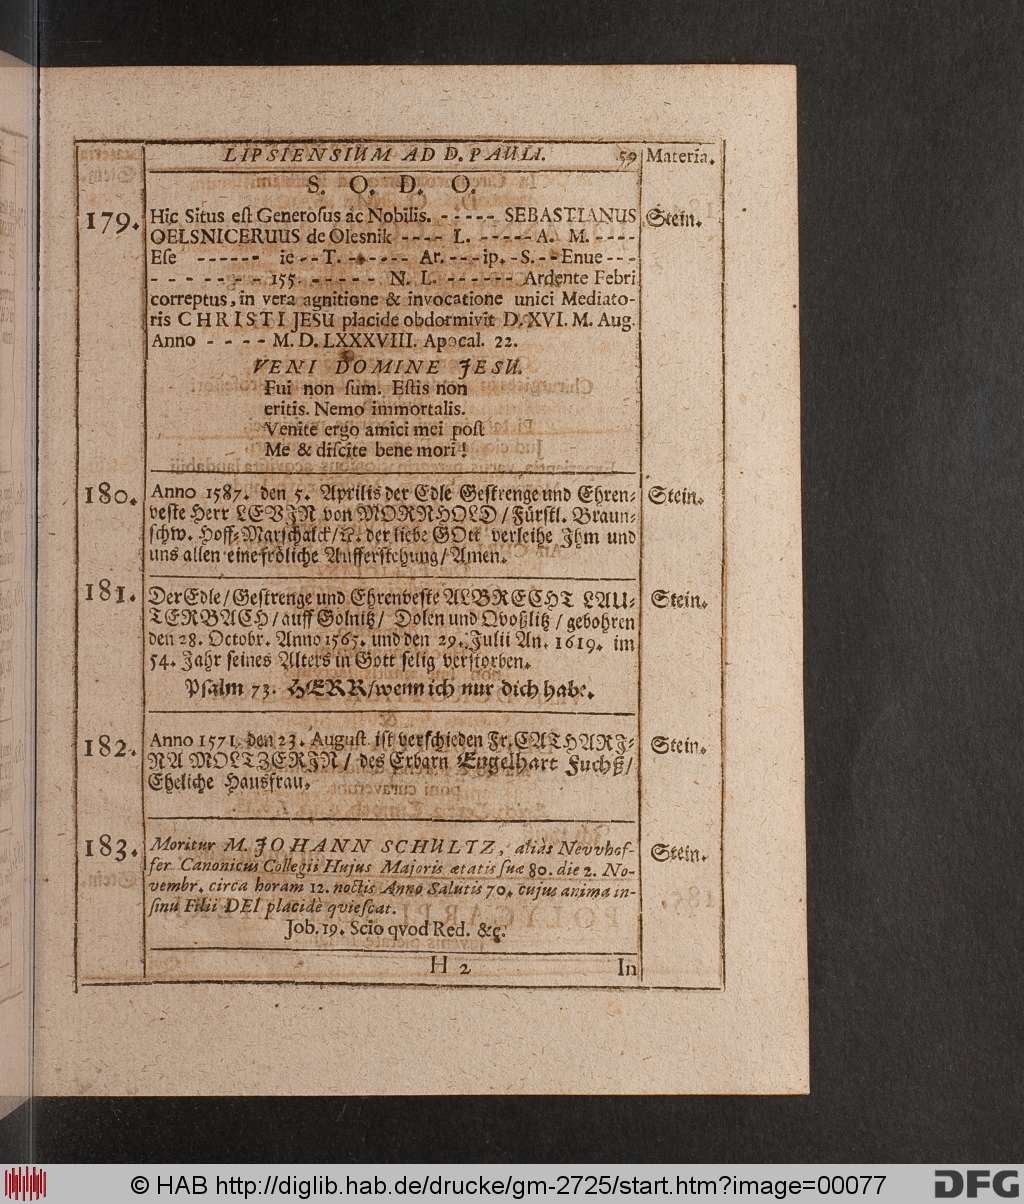 LIPSIENSIUM AD D. PAULI. 59 Materia.
S. O. D. O.
179. Hic Situs est Generosus ac Nobilis. - - - - - SEBASTIANUS Stein.
OELSNICERUUS de Olesnik - - - - L. - - - - - A. M. - - - -
Ese - - - - - - ie - - T. - - - - - - Ar. - - - ip. - S. - - Enue - - -
- - - - - - - - 155. - - - - - N. L. - - - - - - Ardente Febri
correptus, in vera agnitione & invocatione unici Mediato-
ris CHRISTI JESU placide obdormivit D. XVI. M. Aug.
Anno - - - - M. D. LXXXVIII. Apocal. 22.
VENI DOMINE JESU.
Fui non sum. Estis non
eritis. Nemo immortalis.
Venite ergo amici mei post
Me & discite bene mori!
180. Anno 1587. den 5. Aprilis der Edle Gestrenge und Ehren- Stein.
veste Herr LEVIN von MORNHOLD / Fürstl. Braun-
schw. Hoff-Marschalck / ꝛc. der liebe GOtt verleihe Ihm und
uns allen eine fröliche Aufferstehung / Amen.
181. Der Edle / Gestrenge und Ehrenveste ALBRECHT LAU- Stein.
TERBACH / auff Golnitz / Dolen und Qvoßlitz / gebohren
den 28. Octobr. Anno 1565. und den 29. Julii An. 1619. im
54. Jahr seines Alters in Gott selig verstorben.
Psalm 73. HERR / wenn ich nur dich habe.
182. Anno 1571. den 23. August ist verschieden Fr. CATHARI- Stein.
NA MOLTZERIN / des Erbarn Engelhart Fuchß /
Eheliche Hausfrau.
183. Moritur M. JOHANN SCHULTZ, aliàs Nevvhof- Stein.
fer Canonicus Collegii Hujus Majoris ætatis suæ 80. die 2. No-
vembr. circa horam 12. noctis Anno Salutis 70. cujus anima in-
sinu Filii DEI placidè qviescat.
Job. 19. Scio qvod Red. &c.
H 2 In
© HAB http://diglib.hab.de/drucke/gm-2725/start.htm?image=00077
DFG